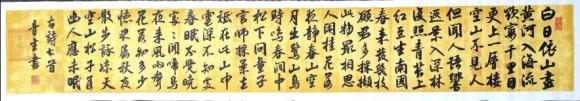 白日依山盡
黃河入海流
欲窮千里目
更上一層樓
空山不見人
但聞人語響
返景入深林
復照青苔上
紅豆生南國
春來發幾枝
願君多採擷
此物最相思
人閒桂花落
夜靜春山空
月出驚山鳥
時鳴春澗中
松下問童子
言師採藥去
只在此山中
雲深不知處
春眠不覺曉
處處聞啼鳥
夜來風雨聲
花落知多少
懷君屬秋夜
散步詠涼天
空山松子落
幽人應未眠
古詩七首